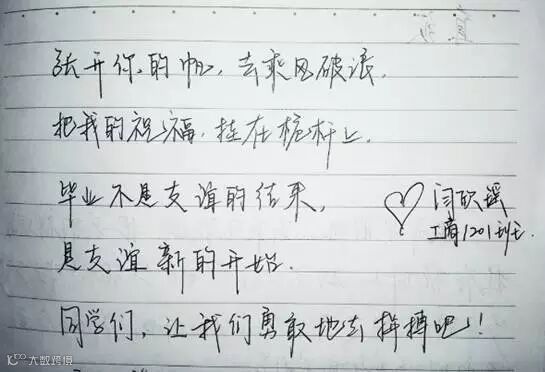 张开你的帆，去乘风破浪.
把我的祝福，挂在桅杆上.
毕业不是友谊的结束，
闫欧瑶
工商1201班
是友谊新的开始.
同学们，让我们勇敢地去拼搏吧！
大数跨境